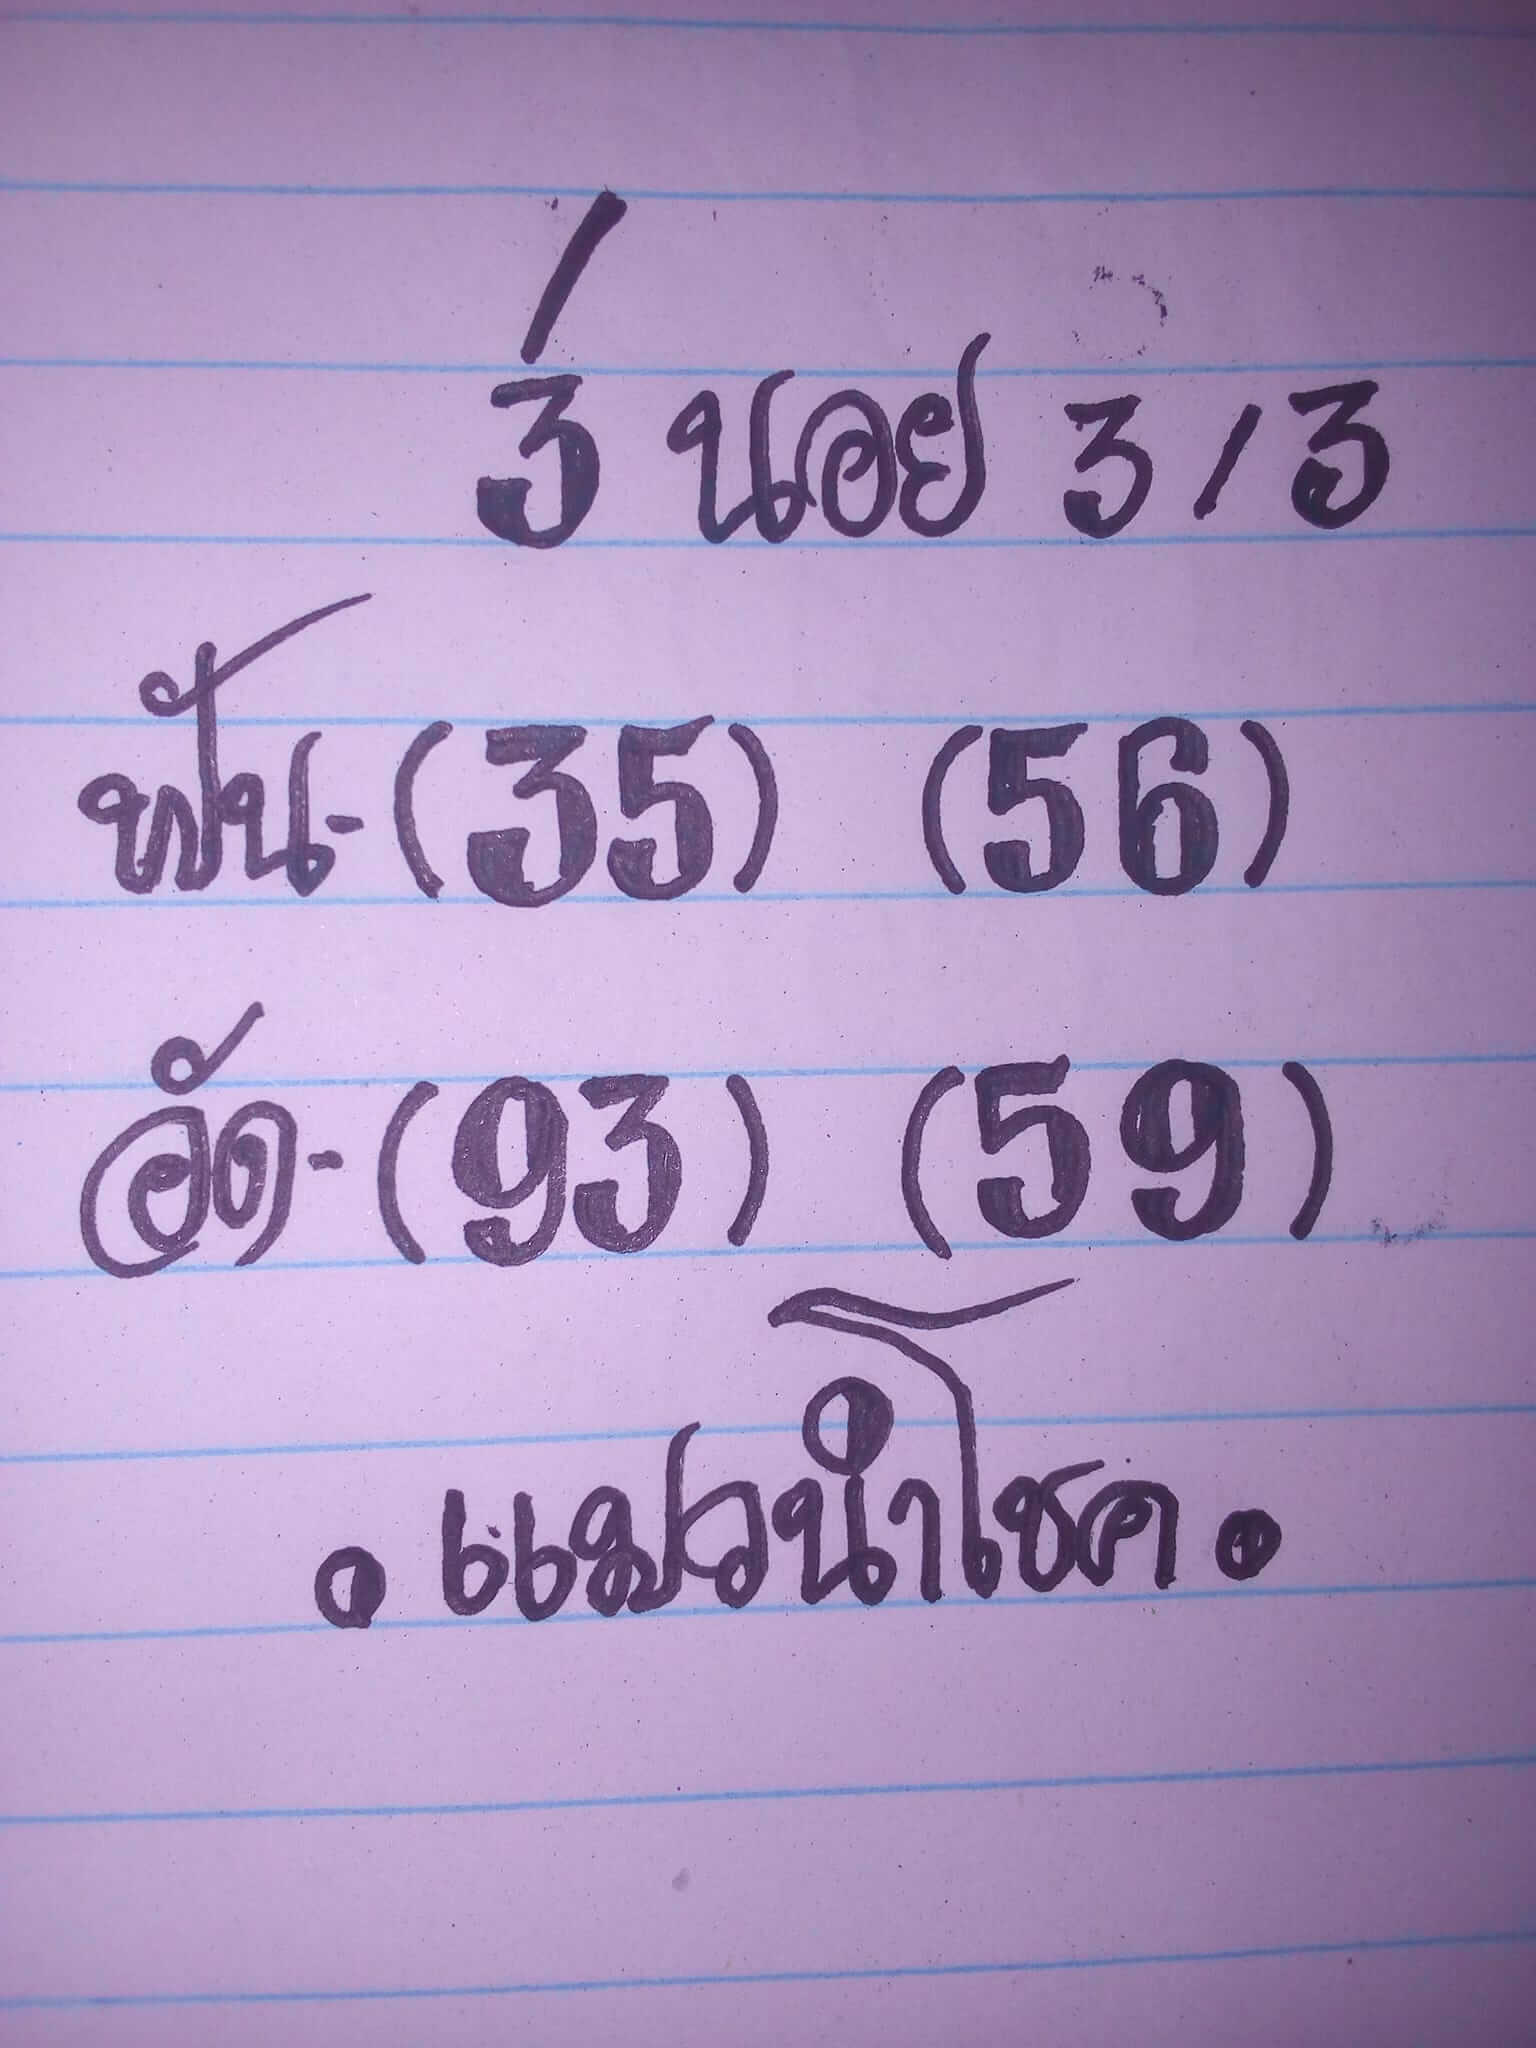 3่ นอย 3/3
ฟัน-(35) (56)
อัด-(93) (59)
•แมวนำโชค•